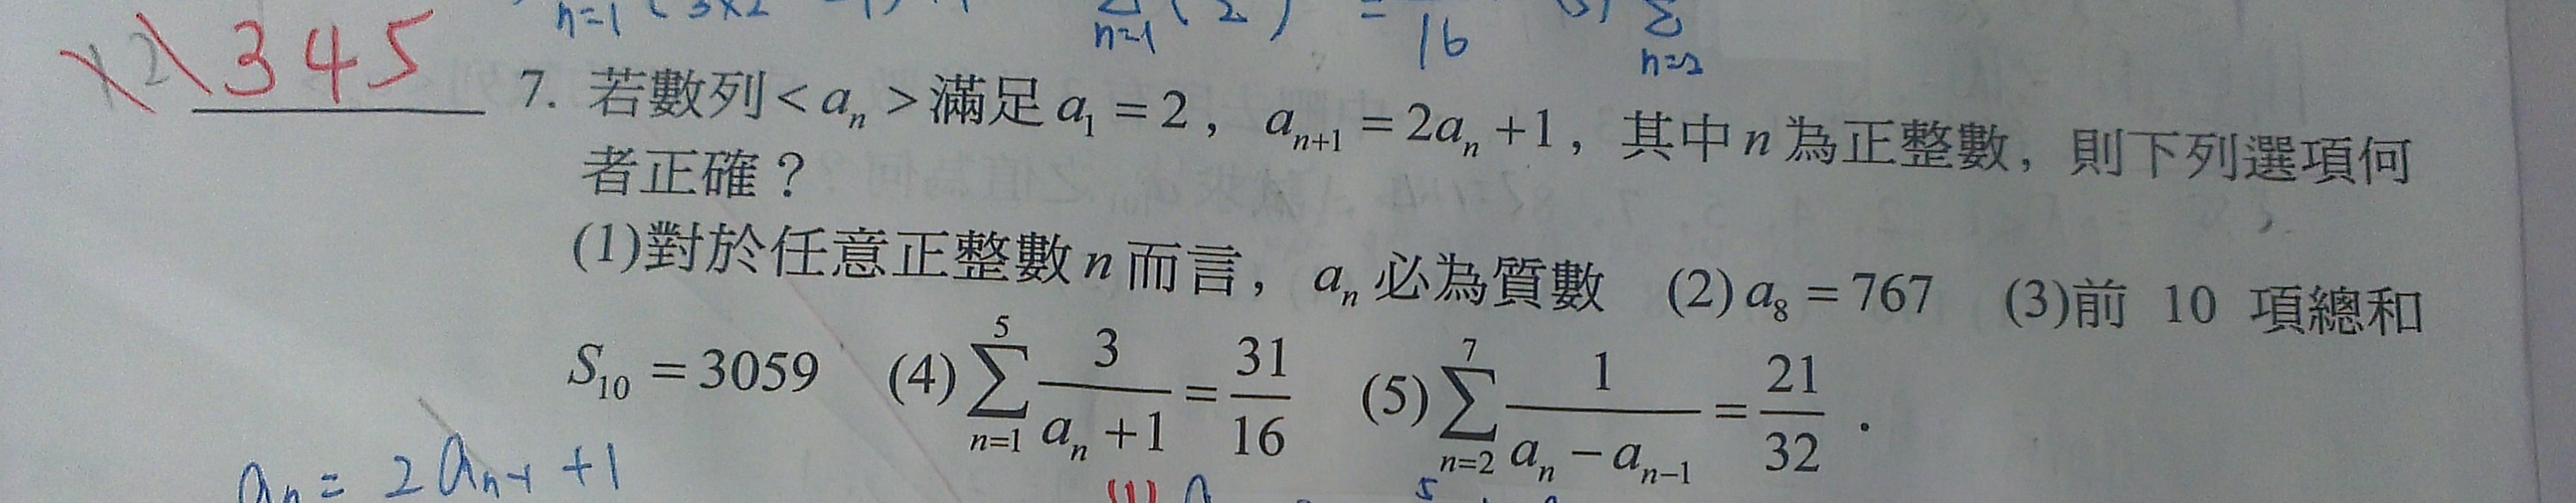 n=1 (3×2
∑ n=1 ( 2 ) = 16
∑ n=2
12 345
7. 若數列<aₙ>滿足a₁=2，aₙ₊₁=2aₙ+1，其中n為正整數，則下列選項何
者正確？
(1)對於任意正整數n而言，aₙ必為質數 (2)a₈=767 (3)前 10 項總和
S₁₀=3059 (4)∑_{n=1}^{5} 3/(aₙ+1)=31/16 (5)∑_{n=2}^{7} 1/(aₙ-aₙ₋₁)=21/32．
aₙ= 2aₙ₋₁+1